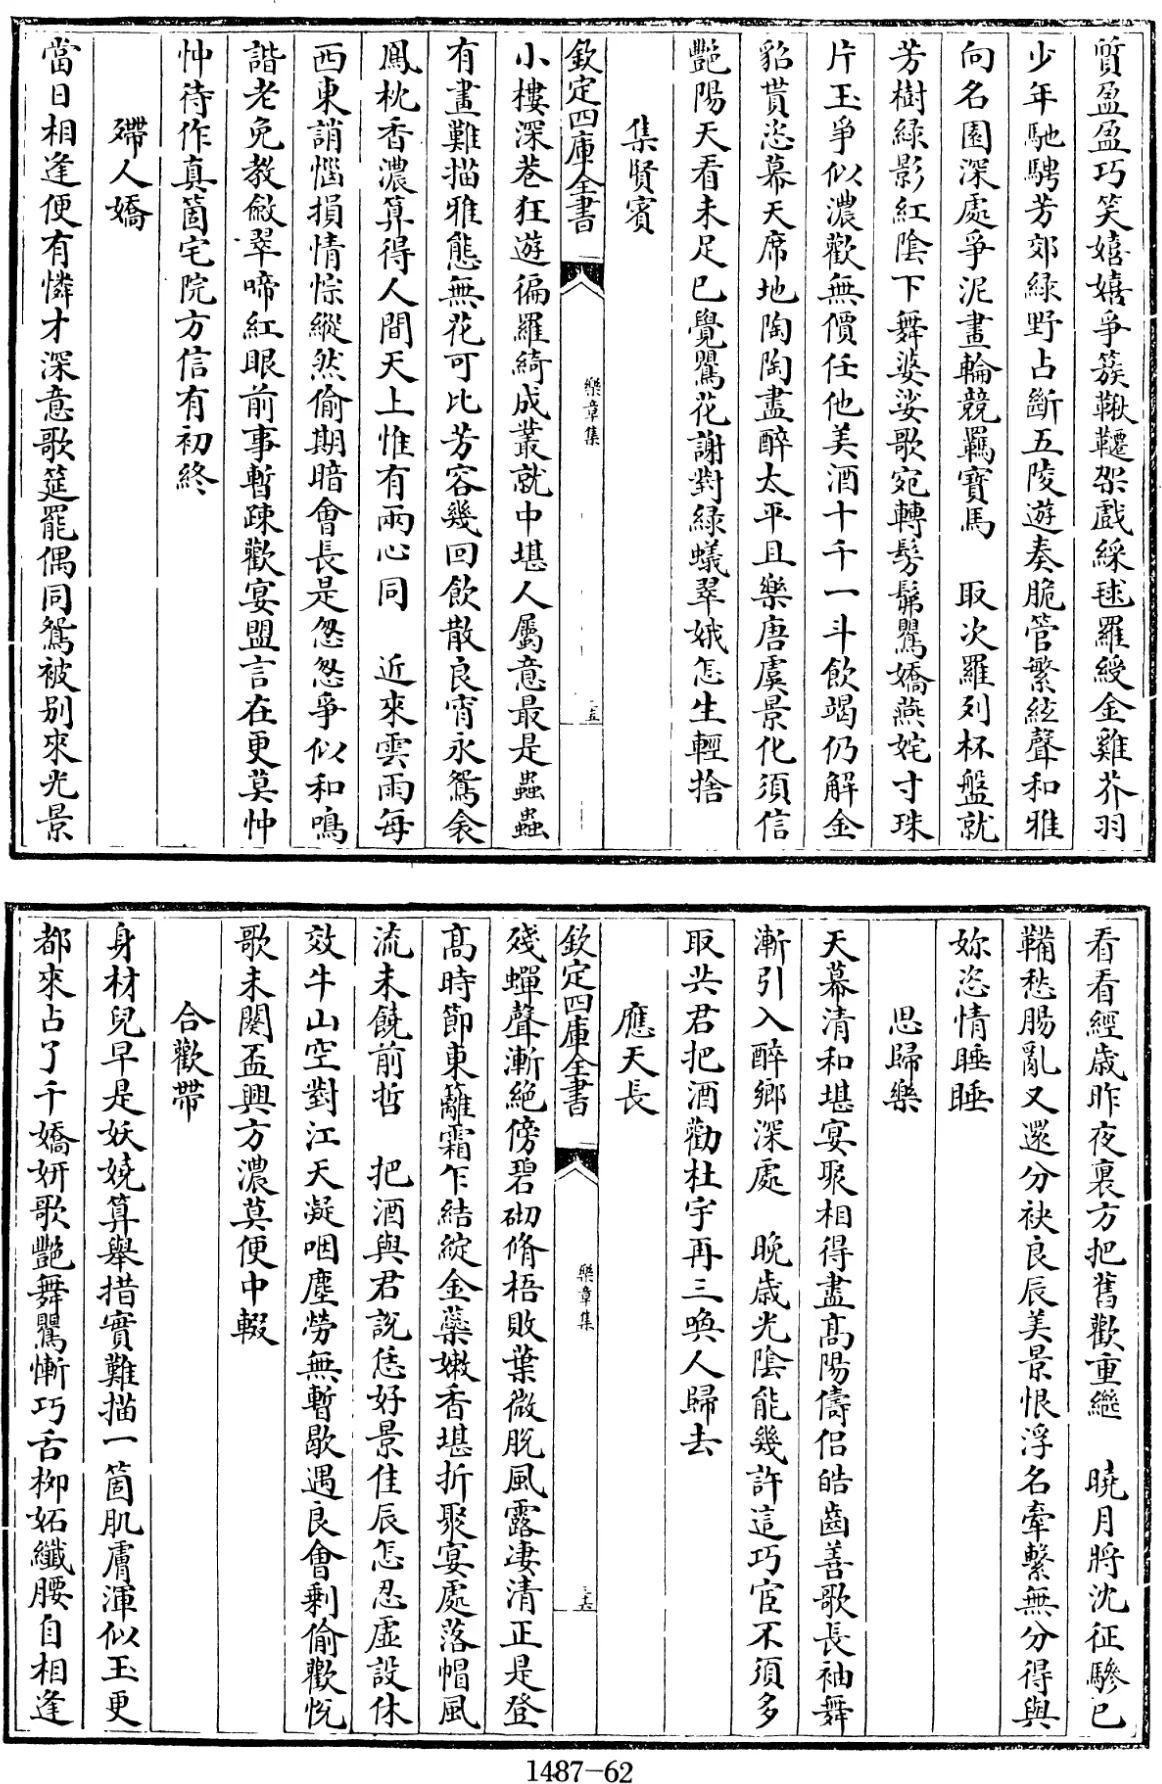 質盈盈巧笑嬉嬉爭簇鞦韆架戲綵毬羅綬金雞芥羽
少年馳騁芳郊綠野占斷五陵遊奏脆管繁絃聲和雅
向名園深處爭泥畫輪競羈寳馬　取次羅列杯盤就
芳樹綠影紅陰下舞婆娑歌宛轉髣髴鶯嬌燕姹寸珠
片玉爭似濃歡無價任他美酒十千一斗飲竭仍解金
貂貰恣幕天席地陶陶盡醉太平且樂唐虞景化須信
艷陽天看未足已覺鶯花謝對綠蟻翠娥怎生輕捨
集賢賓
欽定四庫全書
樂章集
三五
小樓深巷狂遊徧羅綺成叢就中堪人屬意最是蟲蟲
有畫難描雅態無花可比芳容幾回飲散良宵永鴛衾
鳳枕香濃算得人間天上惟有兩心同　近來雲雨每
西東誚惱損情悰縱然偷期暗會長是怱怱爭似和鳴
諧老免教斂翠啼紅眼前事暫疎歡宴盟言在更莫忡
忡待作真箇宅院方信有初終
殢人嬌
當日相逢便有憐才深意歌筵罷偶同鴛被别來光景
看看經歲昨夜裏方把舊歡重繼　曉月將沈征驂已
鞴愁腸亂又還分袂良辰美景恨浮名牽繫無分得與
妳恣情睡睡
思歸樂
天幕清和堪宴聚相得盡高陽儔侣皓齒善歌長袖舞
漸引入醉鄉深處　晚歲光陰能幾許這巧宦不須多
取共君把酒勸杜宇再三喚人歸去
應天長
欽定四庫全書
樂章集
三六
殘蟬聲漸絶傍碧砌脩梧敗葉微脱風露凄清正是登
髙時節東籬霜乍結綻金蘂嫩香堪折聚宴處落帽風
流未饒前哲　把酒與君説恁好景佳辰怎忍虛設休
效牛山空對江天凝咽塵勞無暫歇遇良會剩偷歡悦
歌未闋盃興方濃莫便中輟
合歡帶
身材兒早是妖嬈算舉措實難描一箇肌膚渾似玉更
都來占了千嬌妍歌艷舞鶯慚巧舌柳妬纖腰自相逢
1487—62